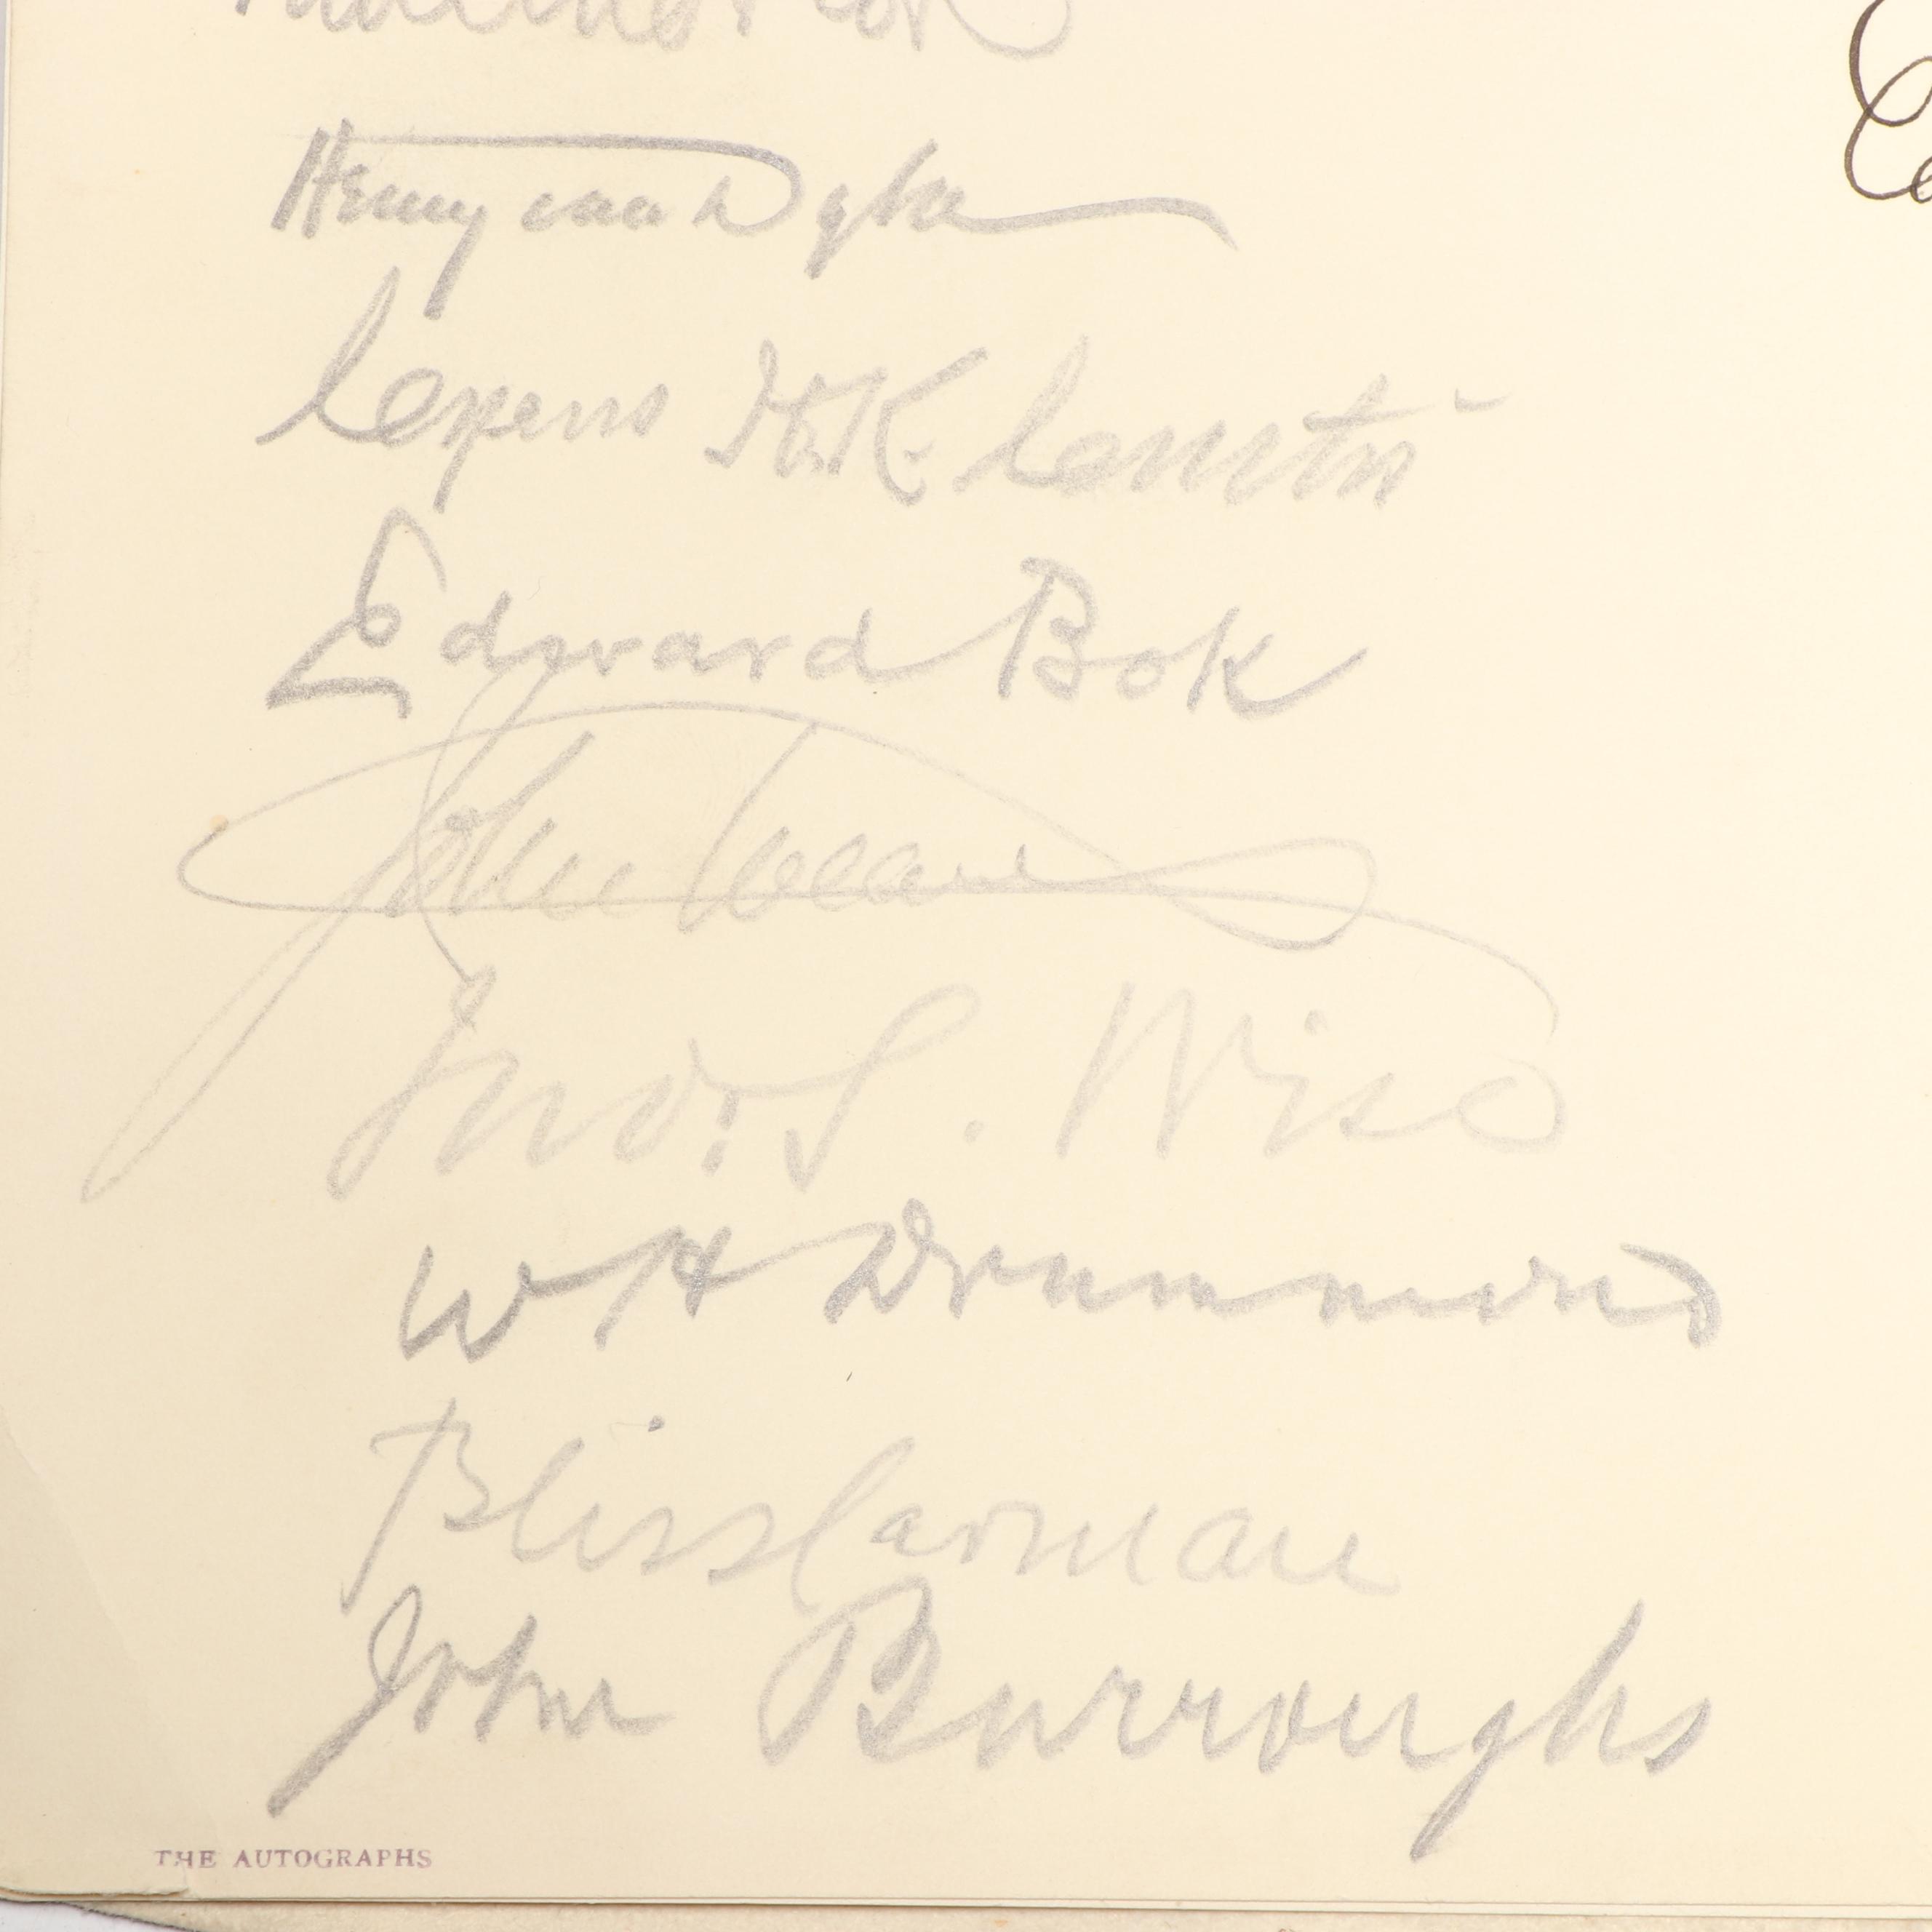 Henry van Dyke
Cyrus H.K. Curtis
Edward Bok
John
Jno. S. Wise
W H Drummond
Bliss Carman
John Burroughs
THE AUTOGRAPHS